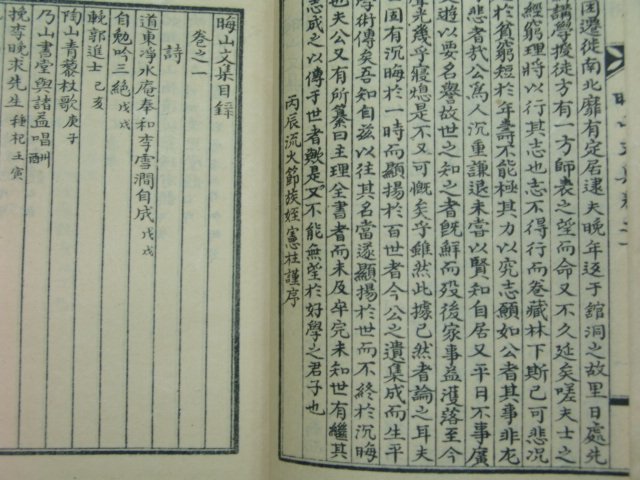 因遷徙南北靡有定居逮夫晚年返于舘洞之故里日處先
講學授徒方有一方師表之望而命又不久延矣嗟夫士之
經窮理將以行其志也志不得行而卷藏林下斯已可悲況
於貧窮短於年壽不能極其力以究志願如公者其事非尤
悲者哉公爲人沉重謙退未嘗以賢知自居又平日不事廣
遊以要名譽故世之知之者旣鮮而歿後家事益濩落至今
光幾乎寢熄是不又可慨矣乎雖然此據已然者論之耳夫
固有沉晦於一時而顯揚於百世者今公之遺集成而生平
學術傳矣吾知自玆以往其名當遂顯揚於世而不終於沉晦
也夫公又有所纂曰主理全書者而未及卒完未知世有繼其
志成之以傳于世者歟是又不能無望於好學之君子也
丙辰流火節族姪憲柱謹序
晦山文集目錄
卷之一
詩
道東淨水庵奉和李雪澗自成 戊戌
自勉吟三絶 戊戌
輓郭進士 己亥
陶山青藜杖歌 庚子
乃山書堂與諸益唱酬
挽李晩求先生 種杞 壬寅